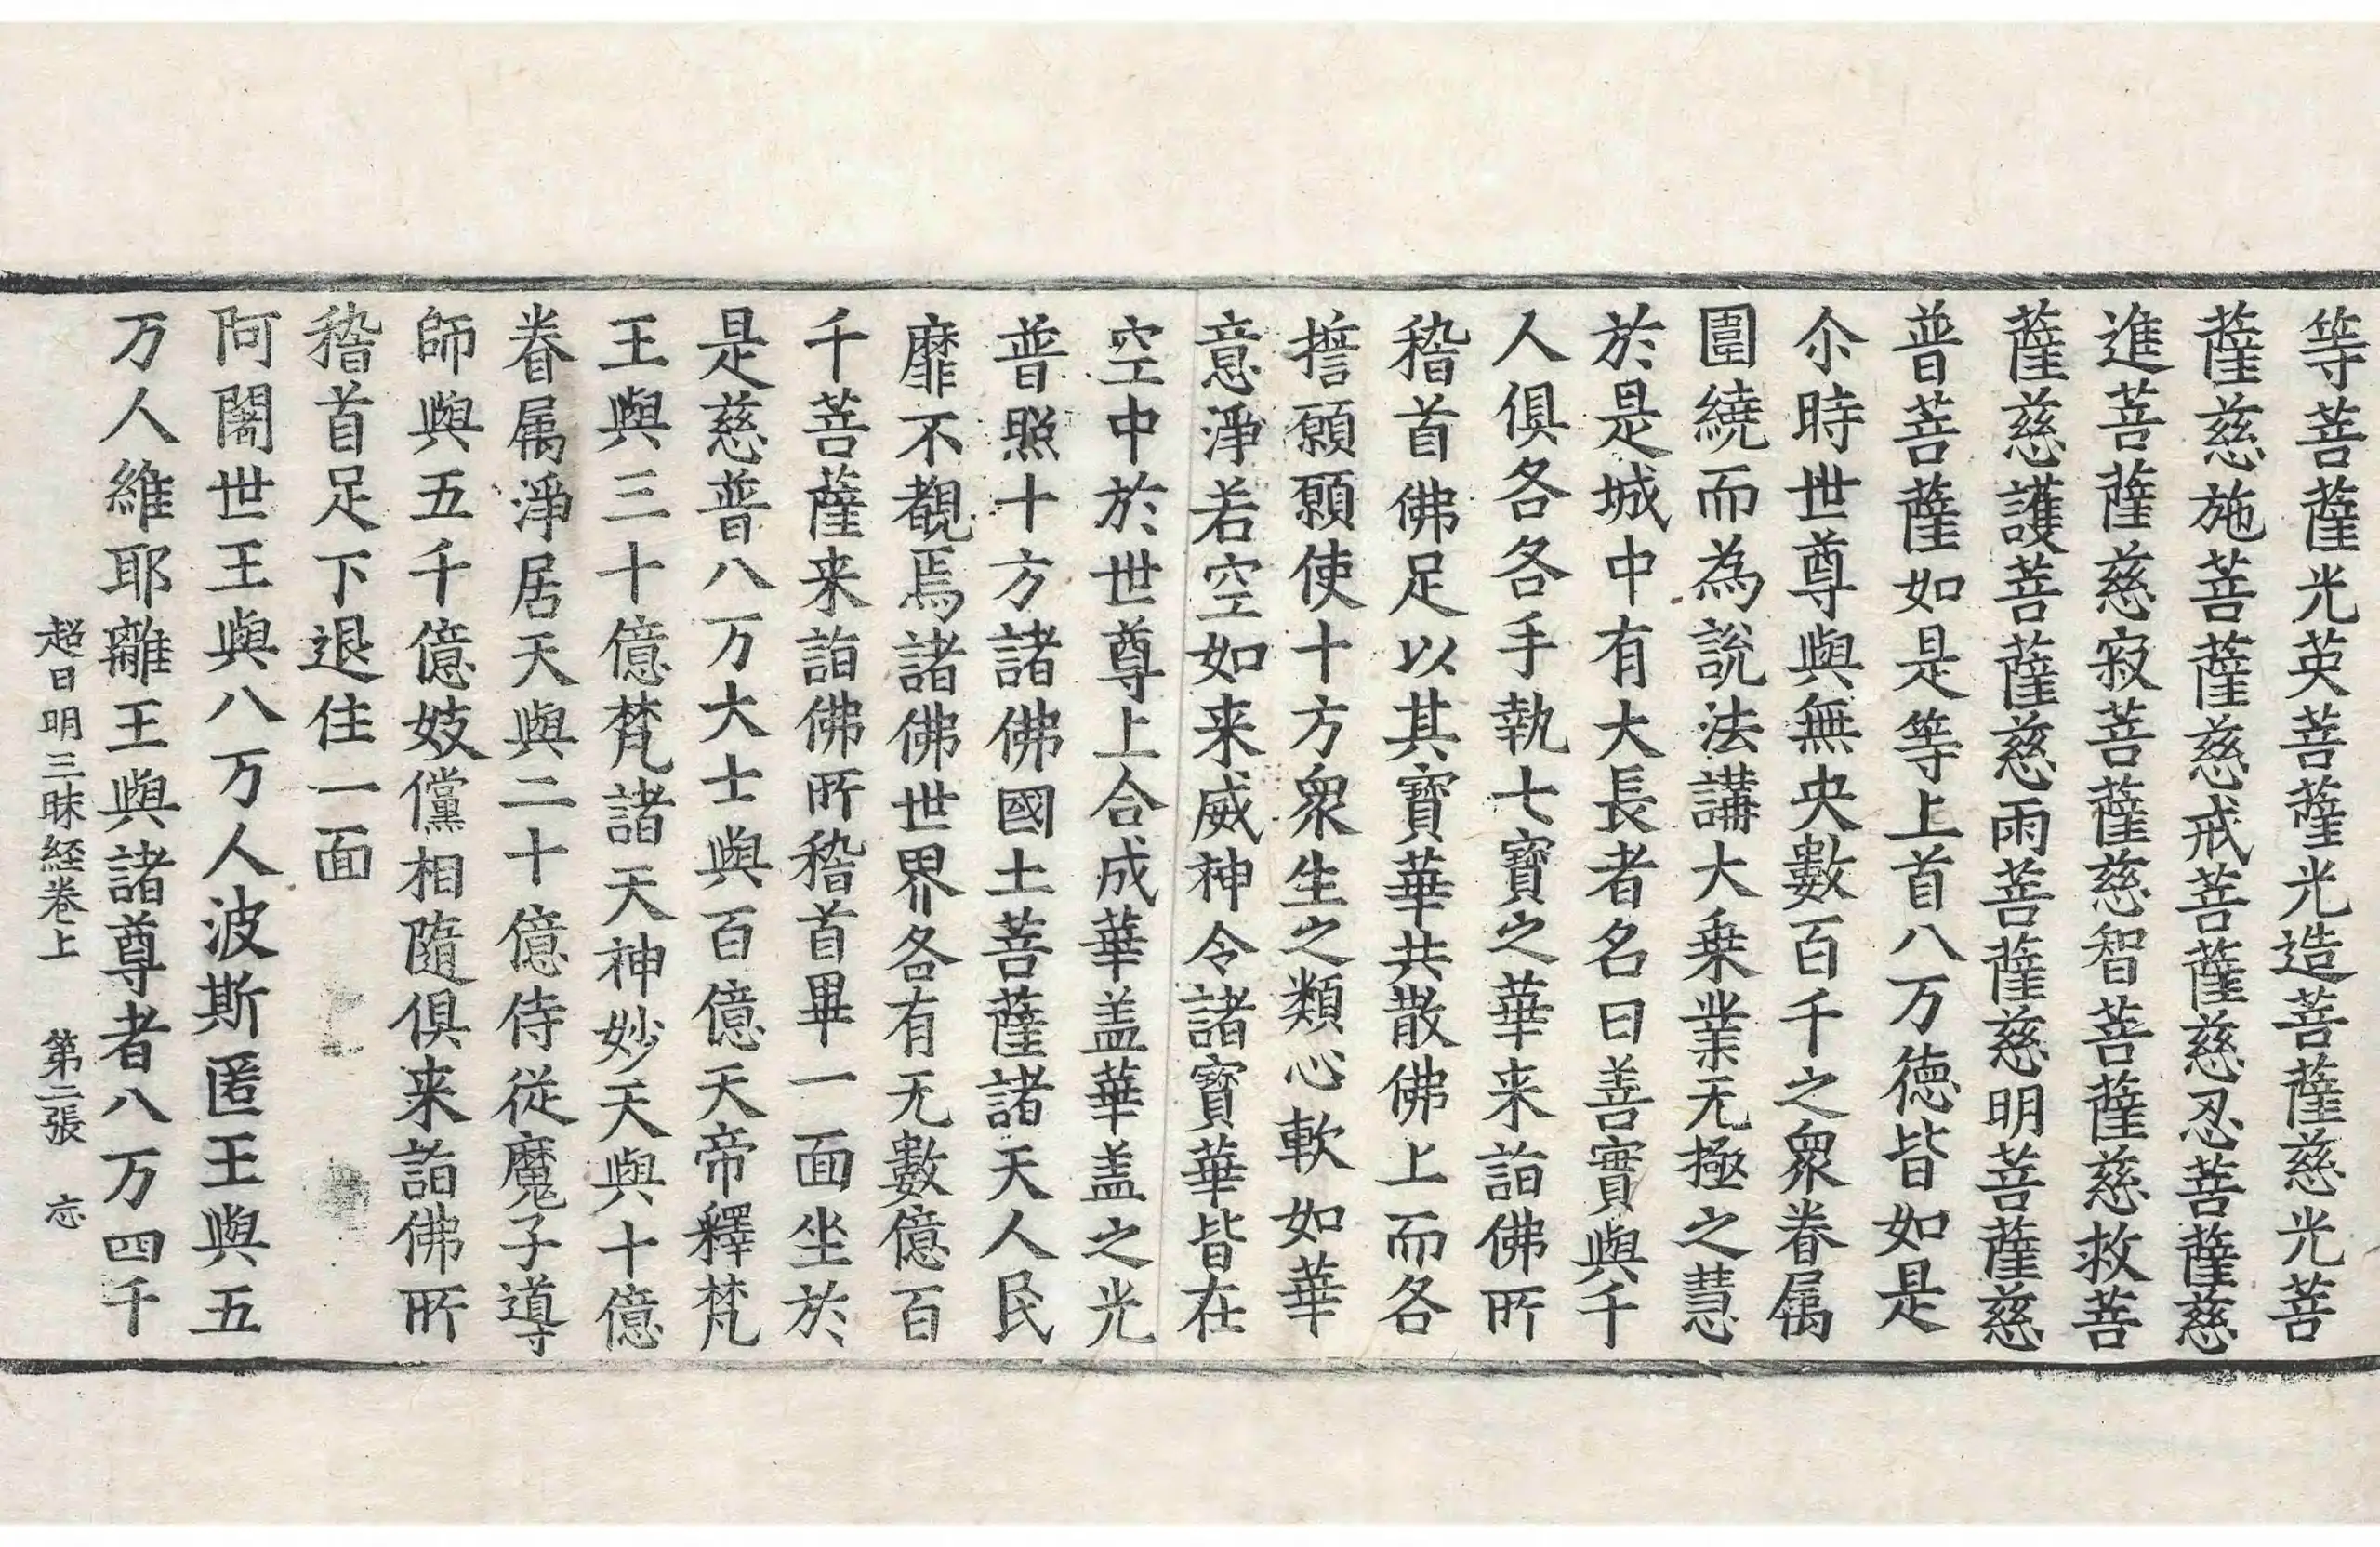 等菩薩光英菩薩光造菩薩慈光菩
薩慈施菩薩慈戒菩薩慈忍菩薩慈
進菩薩慈寂菩薩慈智菩薩慈救菩
薩慈護菩薩慈雨菩薩慈明菩薩慈
普菩薩如是等上首八万德皆如是
尒時世尊與無央數百千之衆眷属
圍繞而為說法講大乗業无極之慧
於是城中有大長者名曰善實與千
人俱各各手執七寶之華来詣佛所
稽首佛足以其寶華共散佛上而各
擔願願使十方衆生之類心軟如華
意淨若空如来威神令諸寶華皆在
空中於世尊上合成華盖華盖之光
普照十方諸佛國土菩薩諸天人民
靡不覩焉諸佛世界各有无數億百
千菩薩来詣佛所稽首畢一面坐於
是慈普八万大士與百億天帝釋梵
王與三十億梵諸天神妙天與十億
眷属淨居天與二十億侍從魔子導
師與五千億妓儻相隨俱来詣佛所
稽首足下退住一面
阿闍世王與八万人波斯匿王與五
万人維耶離王與諸尊者八万四千
超日明三昧経卷上 第二張 忘